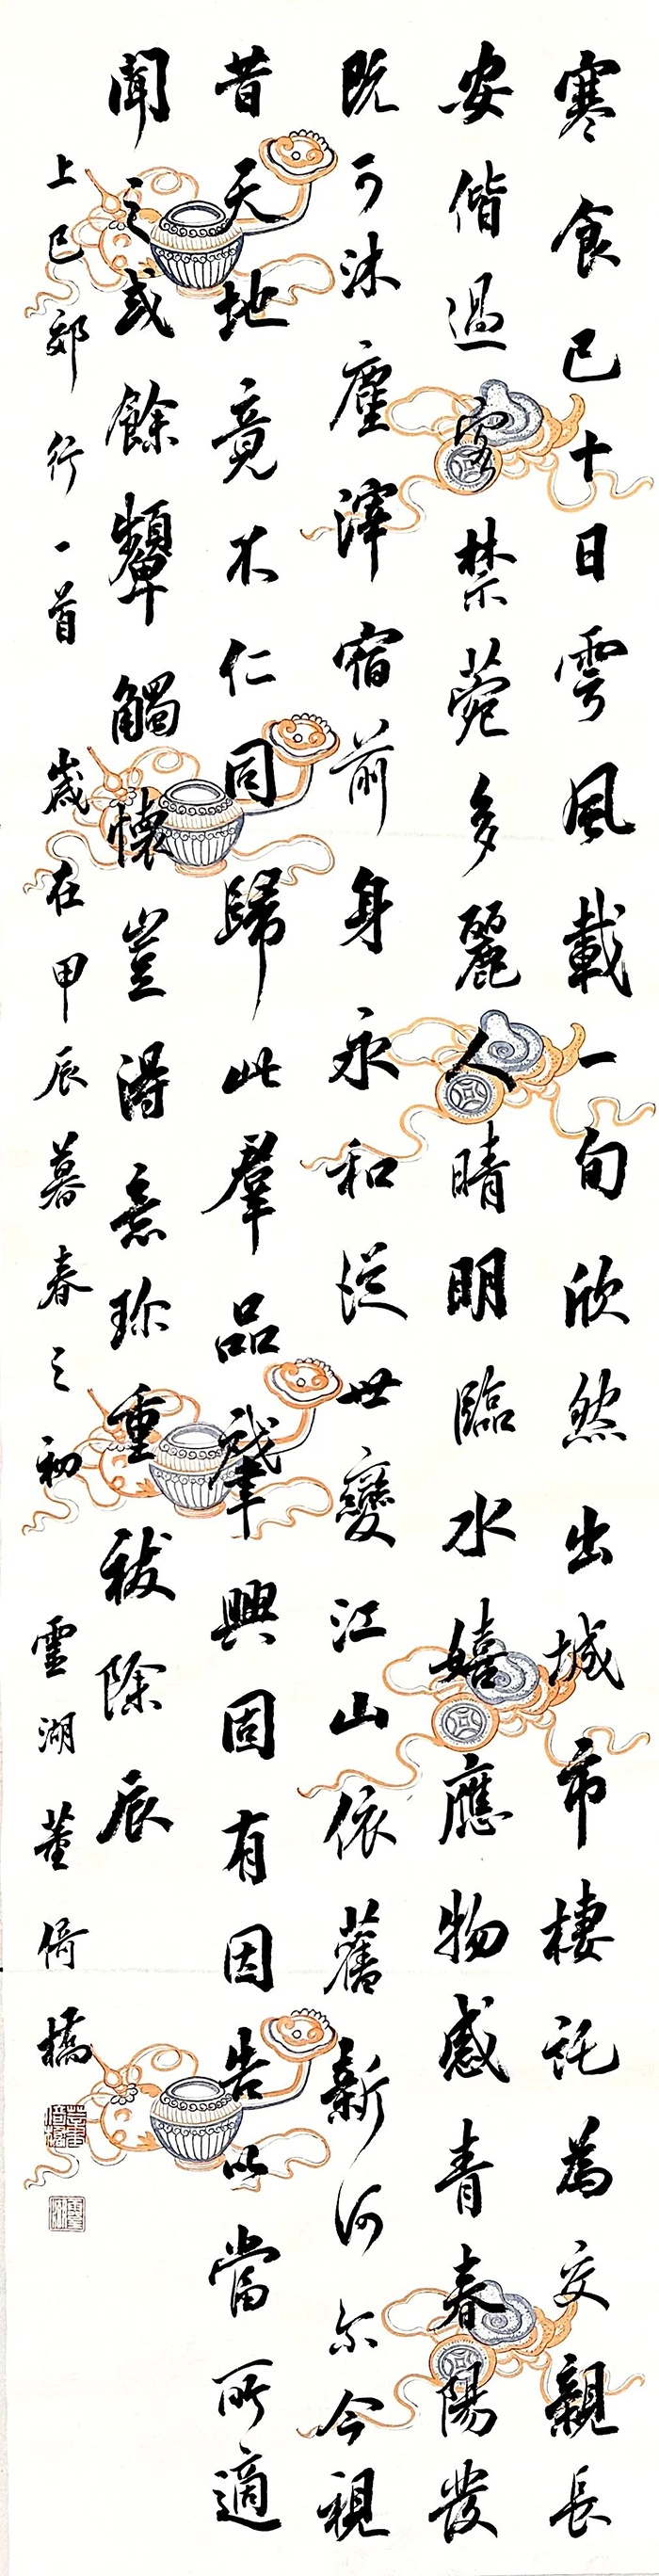 寒食已十日雩風載一旬欣然出城市棲託為交親長
安偕過客禁菀多麗人晴明臨水嬉應物感青春陽發
既可沐塵滓宿前身永和從世變江山依舊新何尔今視
昔天地竟不仁同歸此羣品肇興固有因告以當所適
聞之或餘顰觸懷豈得意珍重祓除辰
上巳郊行一首 歲在甲辰暮春之初 靈湖董倚橋